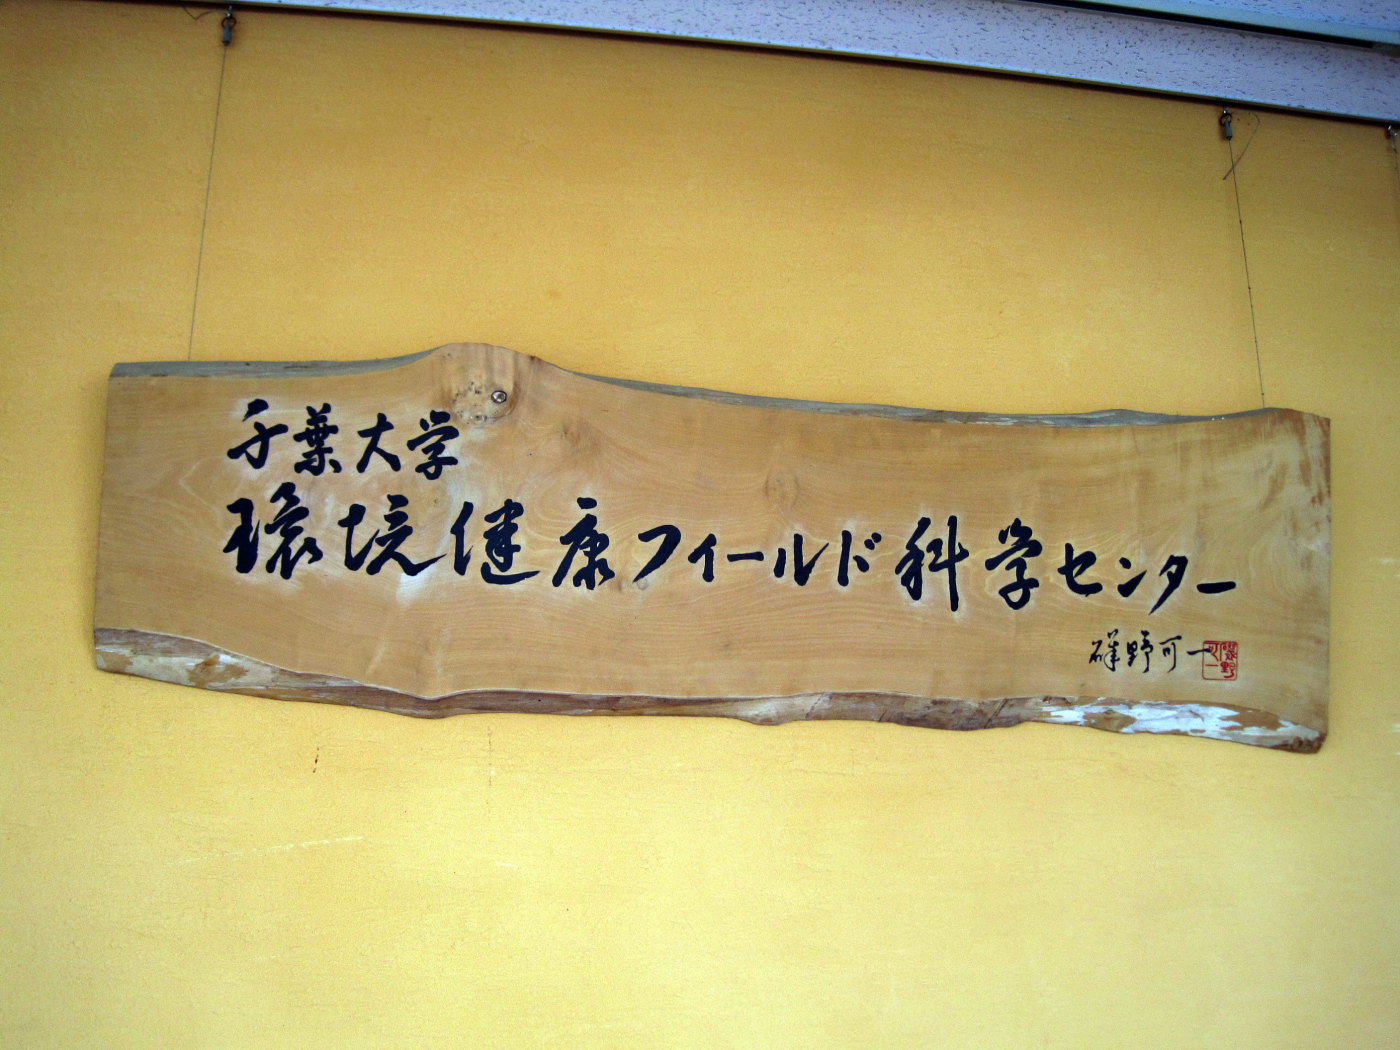 千葉大学
環境健康フィールド科学センター
磯野可一